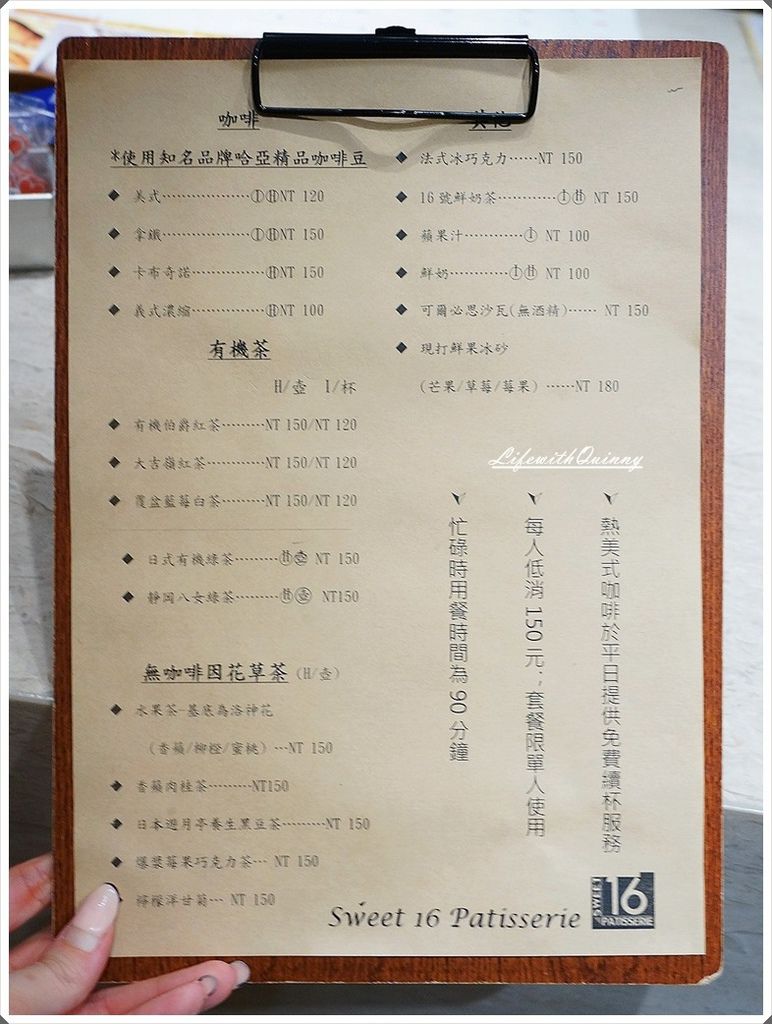 咖啡
*使用知名品牌哈亞精品咖啡豆
◆ 美式⋯⋯⋯⋯⋯ⒾⒽNT 120
◆ 拿鐵⋯⋯⋯⋯⋯ⒾⒽNT 150
◆ 卡布奇諾⋯⋯⋯⋯ⒽNT 150
◆ 義式濃縮⋯⋯⋯⋯ⒽNT 100
有機茶
H/壺 I/杯
◆ 有機伯爵紅茶⋯⋯⋯NT 150/NT 120
◆ 大吉嶺紅茶⋯⋯⋯⋯NT 150/NT 120
◆ 覆盆藍莓白茶⋯⋯⋯NT 150/NT 120
◆ 日式有機綠茶⋯⋯⋯Ⓗ壺 NT 150
◆ 靜岡八女綠茶⋯⋯⋯Ⓗ壺 NT150
無咖啡因花草茶(H/壺)
◆ 水果茶-基底為洛神花
(香蘋/柳橙/蜜桃)⋯NT 150
◆ 香蘋肉桂茶⋯⋯⋯NT150
◆ 日本遊月亭養生黑豆茶⋯⋯⋯NT 150
◆ 爆漿莓果巧克力茶⋯ NT 150
檸檬洋甘菊⋯ NT 150
其他
◆ 法式冰巧克力⋯⋯NT 150
◆ 16 號鮮奶茶⋯⋯⋯⋯ⒾⒽ NT 150
◆ 蘋果汁⋯⋯⋯⋯Ⓘ NT 100
◆ 鮮奶⋯⋯⋯⋯ⒾⒽ NT 100
◆ 可爾必思沙瓦(無酒精)⋯⋯ NT 150
◆ 現打鮮果冰砂
(芒果/草莓/莓果) ⋯⋯NT 180
LifewithQuinny
熱美式咖啡於平日提供免費續杯服務
每人低消 150 元；套餐限單人使用
忙碌時用餐時間為 90 分鐘
Sweet 16 Patisserie
SWEET 16 PATISSERIE